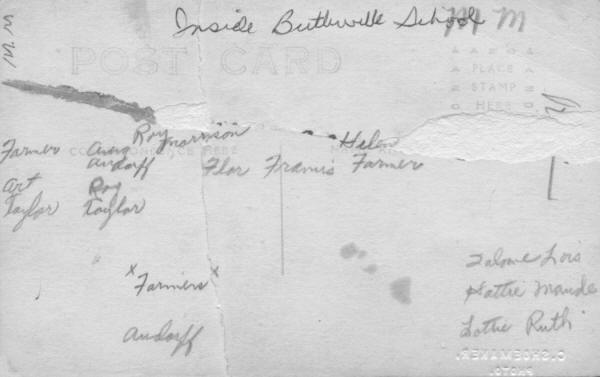 Inside Butlerville School
M M
M. M
POST CARD
PLACE
STAMP
HERE
Roy Morrison
Helen
Farmer Avery Andorff Flor Francis Farmer
CORRESPONDENCE HERE
Art Roy
Taylor Taylor
Salome Lois
x Farmers x
Hattie Maude
Lottie Ruth
Andorff
C. SHOEMAKER.
PHOTO.